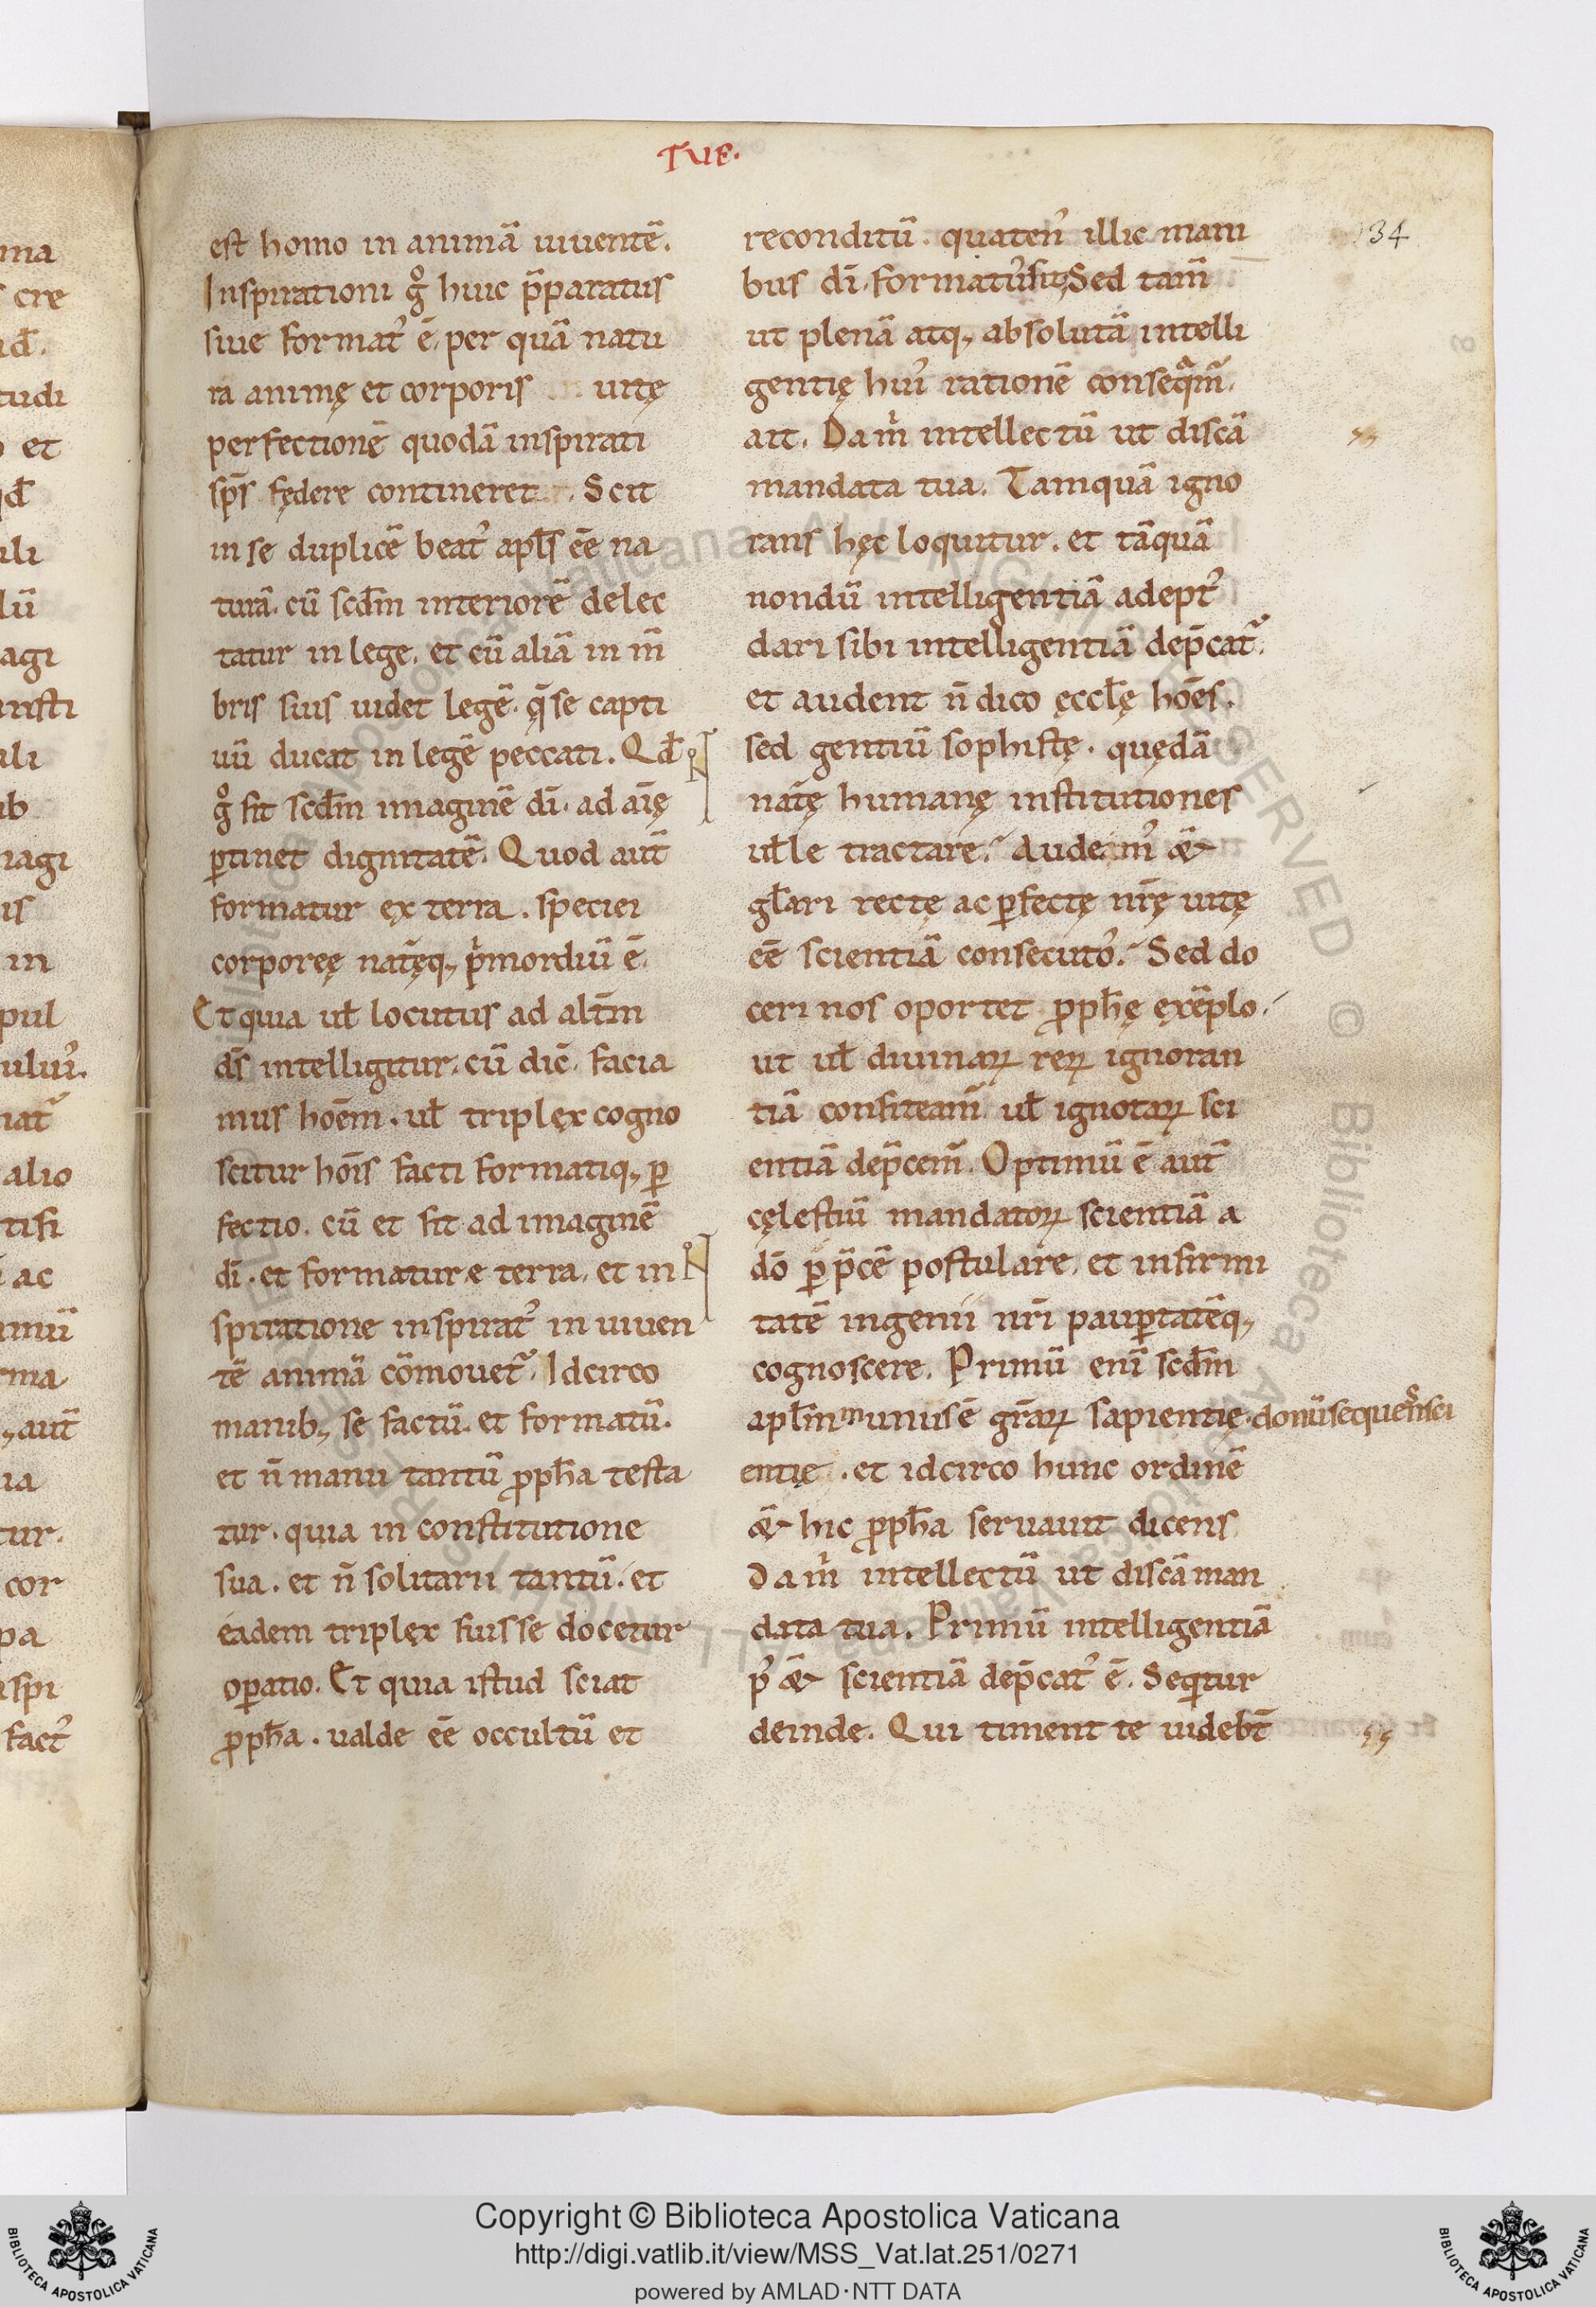 TUE.
134
est homo in animā uiuentē.
Inspirationi gͦ huic p̄paratus
siue format᾿ ē. per quā natu
ra animę et corporis uitę
perfectionē quodā inspirati
sp̄s fędere contineret. Scit
in se duplicē beat᾿ apl̄s ēē na
turā. cū scd̄m interiorē delec
tatur in lege. et cū aliā in m̄
bris suis uidet legē. q̄ se capti
uū ducat in legē peccati. Qd̄
gͦ fit scd̄m imaginē dī. ad aīę
ꝑtinet dignitatē. Quod aut̄
formatur ex terra. speciei
corporeę nat̄ęq, pͥmordiū ē.
Et quia ul̄ locutus ad alt̄m
ds̄ intelligitur. cū dic̄. facia
mus hoēm. ul̄ triplex cogno
scitur hoīs facti formatiq, ꝑ
fectio. cū et fit ad imaginē
dī. et formatur e terra. et in
spiratione inspirat᾿ in uiuen
tē animā cōmouet᷑. Idcirco
manib, se factū. et formatū.
et n̄ manu tantū ꝓph̄a testa
tur. quia in constitutione
sua. et n̄ solitarii tantū. et
eadem triplex fuisse docetur
oꝑatio. Et quia istud sciat
ꝓph̄a. ualde ēē occultū et
reconditū. quaten᾿ illic mani
bus dī. formatus sit. Sed tam̄
ut plenā atq, absolutā intelli
gentię hui᾿ rationē conseqͣm᷑.
ait. Da mͥ intellectū ut discā
mandata tua. Tamquā igno
rans hęc loquitur. et tāquā
nondū intelligentiā adept᾿
dari sibi intelligentiā dep̄cat᷑.
et audent n̄ dico ęccl̄ę hoēs.
sed gentiū sophistę. quędā
nat̄ę humanę institutiones
ul̄le tractare. Audeam᾿ &
gl̄ari recte ac ꝑfectę nr̄ę uitę
ēē scientiā consecuto. Sed do
ceri nos oportet ꝓph̄ę exēplo.
ut ul̄ diuinaꝝ reꝝ ignoran
tiā confiteam᷑. ul̄ ignotaꝝ sci
entiā dep̄cem᷑. Optimū ē aut̄
cęlestiū mandatoꝝ scientiā a
dō ꝑ p̄cē postulare. et infirmi
tatē ingenii nr̄i pauꝑtatēq,
cognoscere. Primū enī scd̄m
apl̄m munus ē gr̄aꝝ sapientię. donū sequens sci
entię. et idcirco hunc ordinē
& hic ꝓph̄a seruauit dicens
Da mͥ intellectū ut discā man
data tua. Primū intelligentiā
p᾿ & scientiā dep̄cat᾿ ē. Seqͥtur
deinde. Qui timent te uidebt̄
Copyright © Biblioteca Apostolica Vaticana
http://digi.vatlib.it/view/MSS_Vat.lat.251/0271
powered by AMLAD·NTT DATA